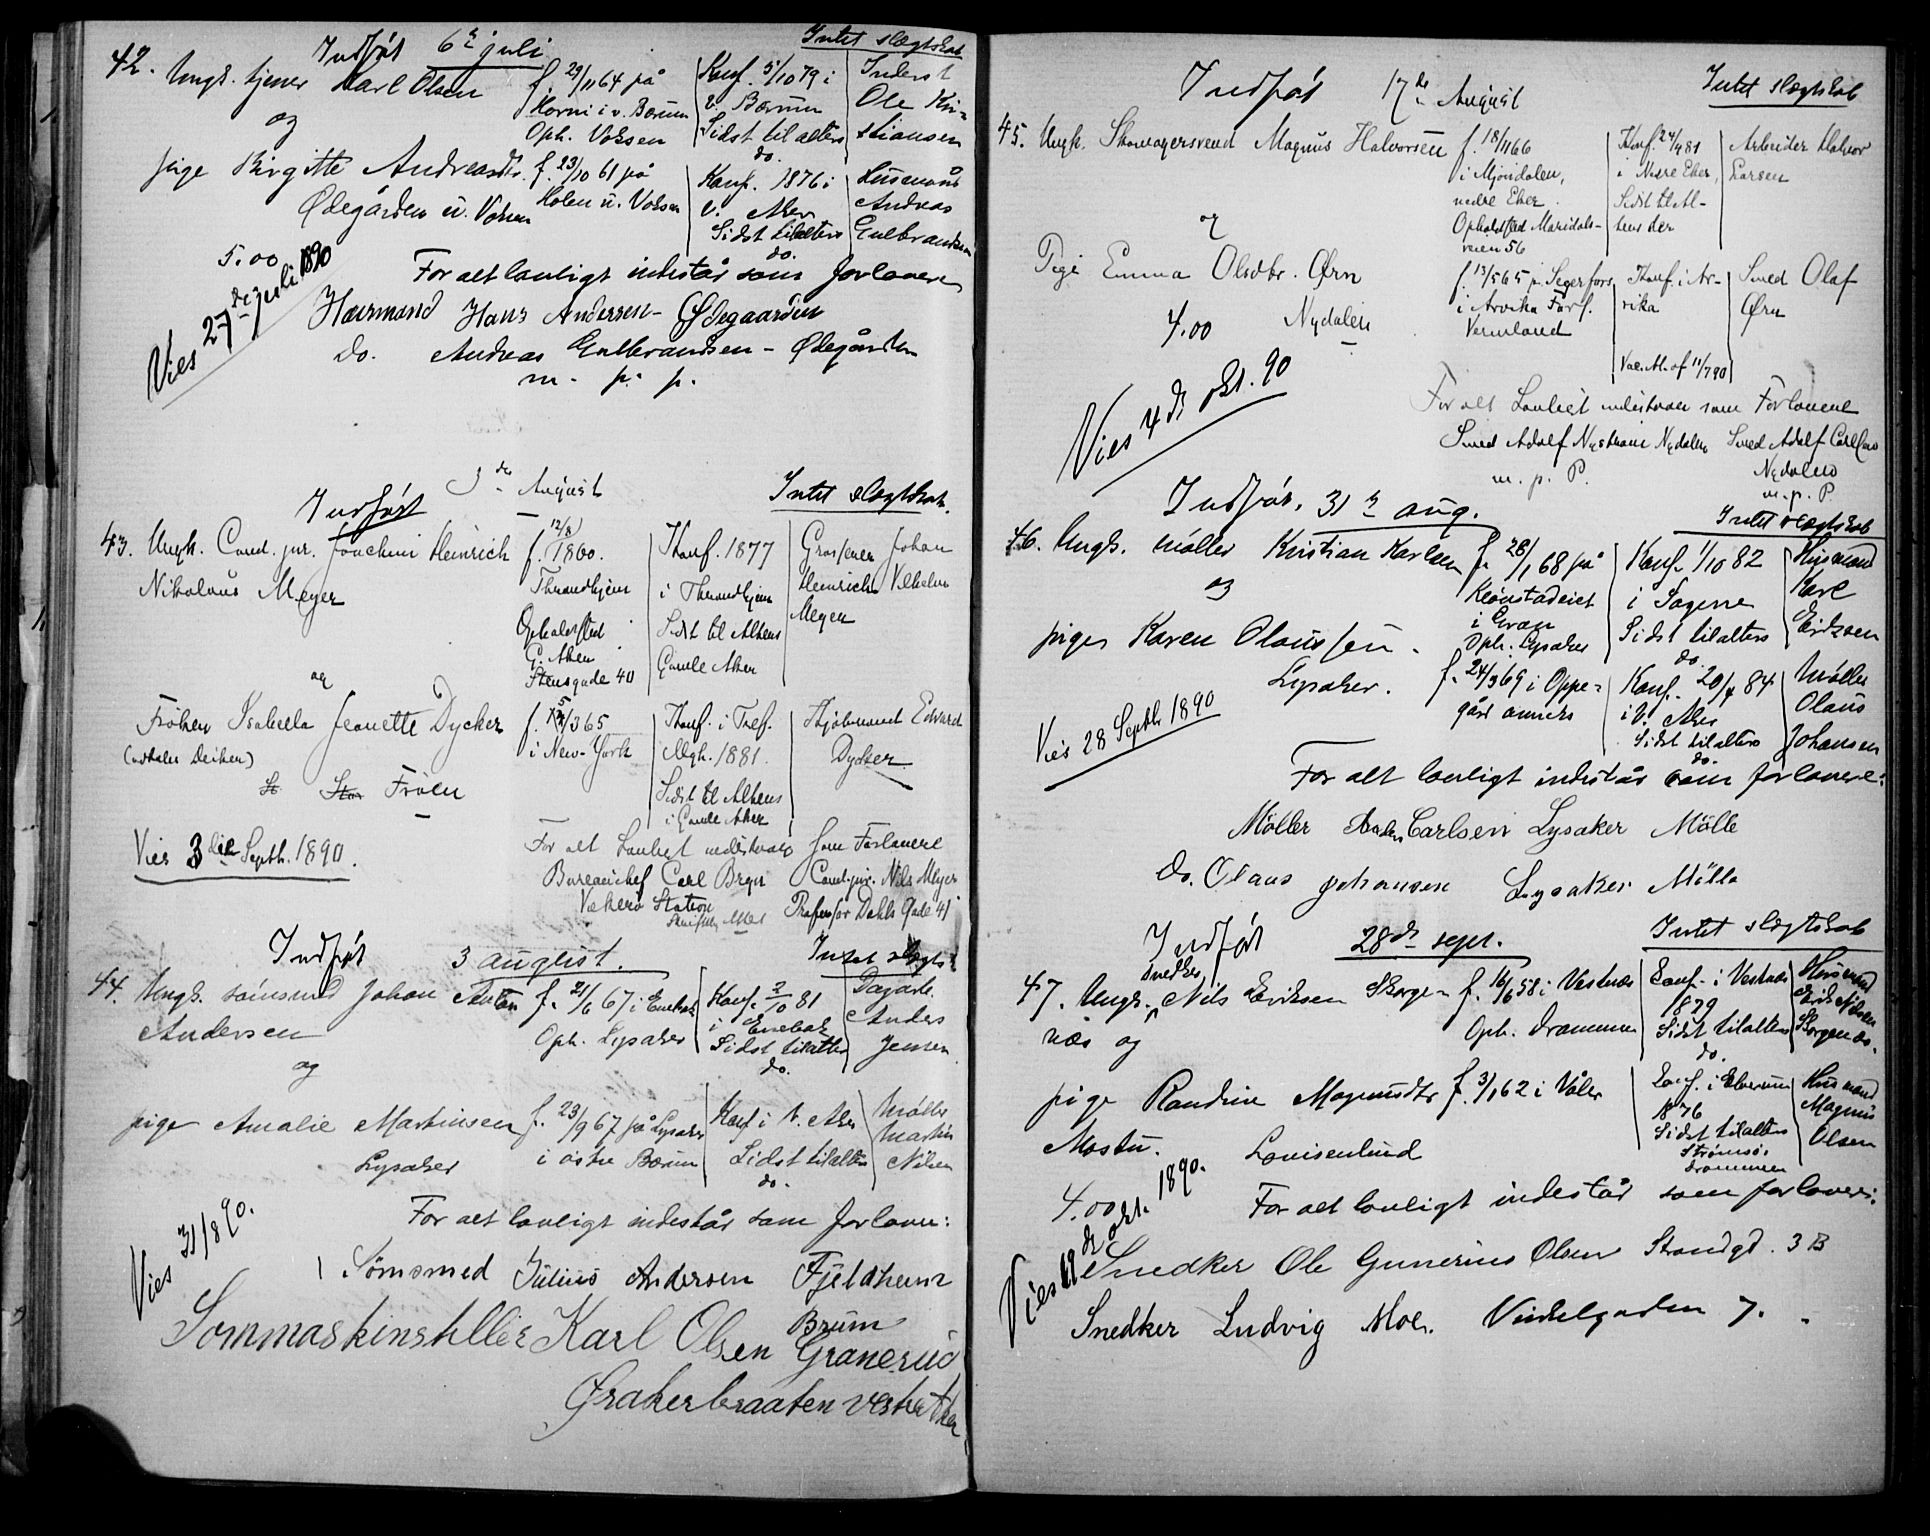 Indført 6te juli Intet slægtskab
42. Ungk. tjener Karl Olsen f. 29/11 64 på Konf. 5/10 79 i Inderst
og Horni i v. Bærum v. Bærum Ole Kri-
Oph. Voksen Sidst til alters stiansen
do.
pige Birgitte Andreasdtr. f. 23/10 61 på Konf. 1876 i Husmand
Ødegården u. Voksen Holen u. Voksen V. Aker Andreas
Sidst til alters Gulbrandsen
do.
5.00
Vies 27de juli 1890
For alt lovligt indestår som forlovere
Husmand Hans Andersen - Ødegaarden
do. Andreas Gulbrandsen - Ødegården
m. p. p.
3de August
Indført Intet slægtskab.
43. Ungk. Cand. jur. Joachim Heinrich f. 12/8 1860. Konf. 1877 Grosserer Johan
Nikolaus Meyer Throndhjem i Throndhjem Heinrich Vilhelm
Opholdssted Sidst til Alters Meyer
G. Aker Gamle Aker
Stensgade 40
og
Frøken Isabella Jeanette Dycker f. 5/3 65 Konf. i Tref. Skibsmand Edvard
(udtales Deiker) i New-York Mgh. 1881. Dycker
St. Stor Frøen Sidst til Alters
i Gamle Aker
Vies 3die Septb. 1890.
For alt Lovligt indestaar som Forlovere
Bureauchef Carl Cand. jur. Nils Meyer
Vækerø Station Professor Dahls Gade 41
Indført 3 august. Intet slægts
44. Ungk. sømsmed Johan Anton f. 21/6 67 i Enebak Konf. 2/10 81 Dagarb.
Andersen Oph. Lysaker i Enebak Anders
og Sidst til alters Jensen
do.
pige Amalie Martinsen f. 23/9 67 på Lysaker Konf i V. Aker Møller
Lysaker i østre Bærum Sidst til alters Martin
do. Nilsen
Vies 31/8 90.
For alt lovligt indestår som forlovere:
Sømsmed Julius Andersen Fjeldheim
Bærum
Sommaskinstiller Karl Olsen Granerud
Ørakerbraaten vestre Aker
Indført 17de August Intet Slægtskab
45. Ungk. Skomagersvend Magnus Halvorsen f. 18/11 66 Konf. 24/4 81 Arbeider Halvor
i Mjøndalen, i Nedre Eker, Larsen
nedre Eker. Sidst til Al-
Opholdssted Maridals- ters der
veien 56
og
Pige Emma Olsdtr. Ørn f. 13/5 65 p. Segerfors Konf. i Ar- Smed Olaf
4.00 Nydalen i Arvika Førs. vika Ørn
Vermland
Vac. At. af 11/7 90
Vies 4de Okt. 90
For alt Lovligt indestaar som Forlovere
Smed Adolf Nystrøm Nydalen Smed Adolf Carlsen
m. p. P. Nydalen
m. p. P.
Indført. 31te aug. Intet slægtskab
46. Ungk. møller Kristian Karlsen f. 28/1 68 på Konf. 1/10 82 Husmand
og Klonstadeiet i Sagene Karl
i Gran Sidst til alters Eriksen
Oph. Lysaker do.
pige Karen Olaussen. f. 24/3 69 i Oppe- Konf. 20/4 84 Møller
Lysaker. gård annex i V. Aker Olaus
Sidst til alters Johansen
do.
Vies 28 Septb 1890
For alt lovligt indestår som forlovere:
Møller Anders Carlsen Lysaker Mølle
do. Olaus Johansen Lysaker Mølle
Indført 28de sept. Intet slægtskab
47. Ungk. snedker Nils Eriksen Skorge- f. 16/6 58 i Vestnæs Konf. i Vestnæs Husmand
næs og Oph. Drammen 1879 Erik Nilsen
Sidst til alters Skorgenæs.
do.
pige Randine Magnusdtr f. 3/1 62 i Våler Konf. i Elverum Husmand
Mostu. Louisenlund 1876 Magnus
Sidst til alters Olsen
Strømsø.
Drammen
4.00
Vies 19de okt. 1890.
For alt lovligt indestår som forlovere:
Snedker Ole Gunerius Olsen Strandgd. 3 B
Snedker Ludvig Moe. Vinkelgaden 7.